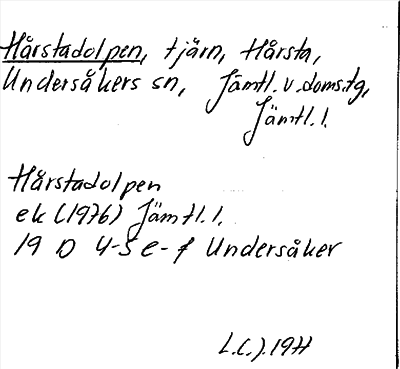 Hårstadolpen, tjärn, Hårsta,
Undersåkers sn, Jämtl. v. doms.tg,
Jämtl. l.
Hårstadolpen
ek (1976) Jämtl. l.
19 D 4-5 e-f Undersåker
L.C.J. 1977